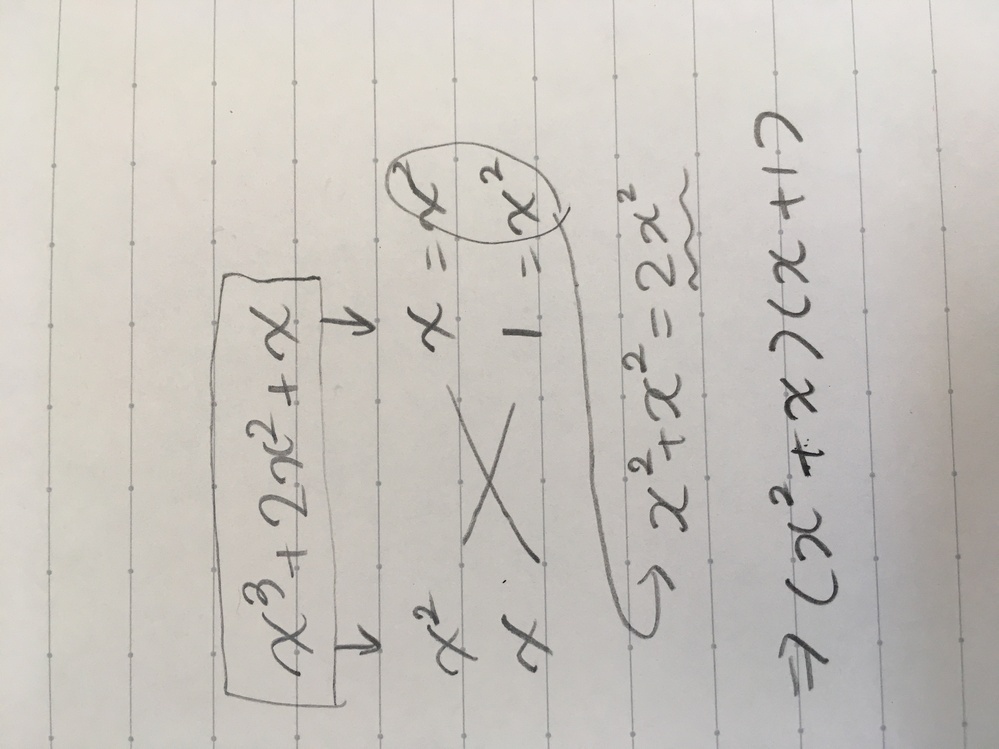 x³+2x²+x
↓ ↓
x² x = x²
x 1 = x²
→ x²+x² = 2x²
⇒ (x²+x)(x+1)